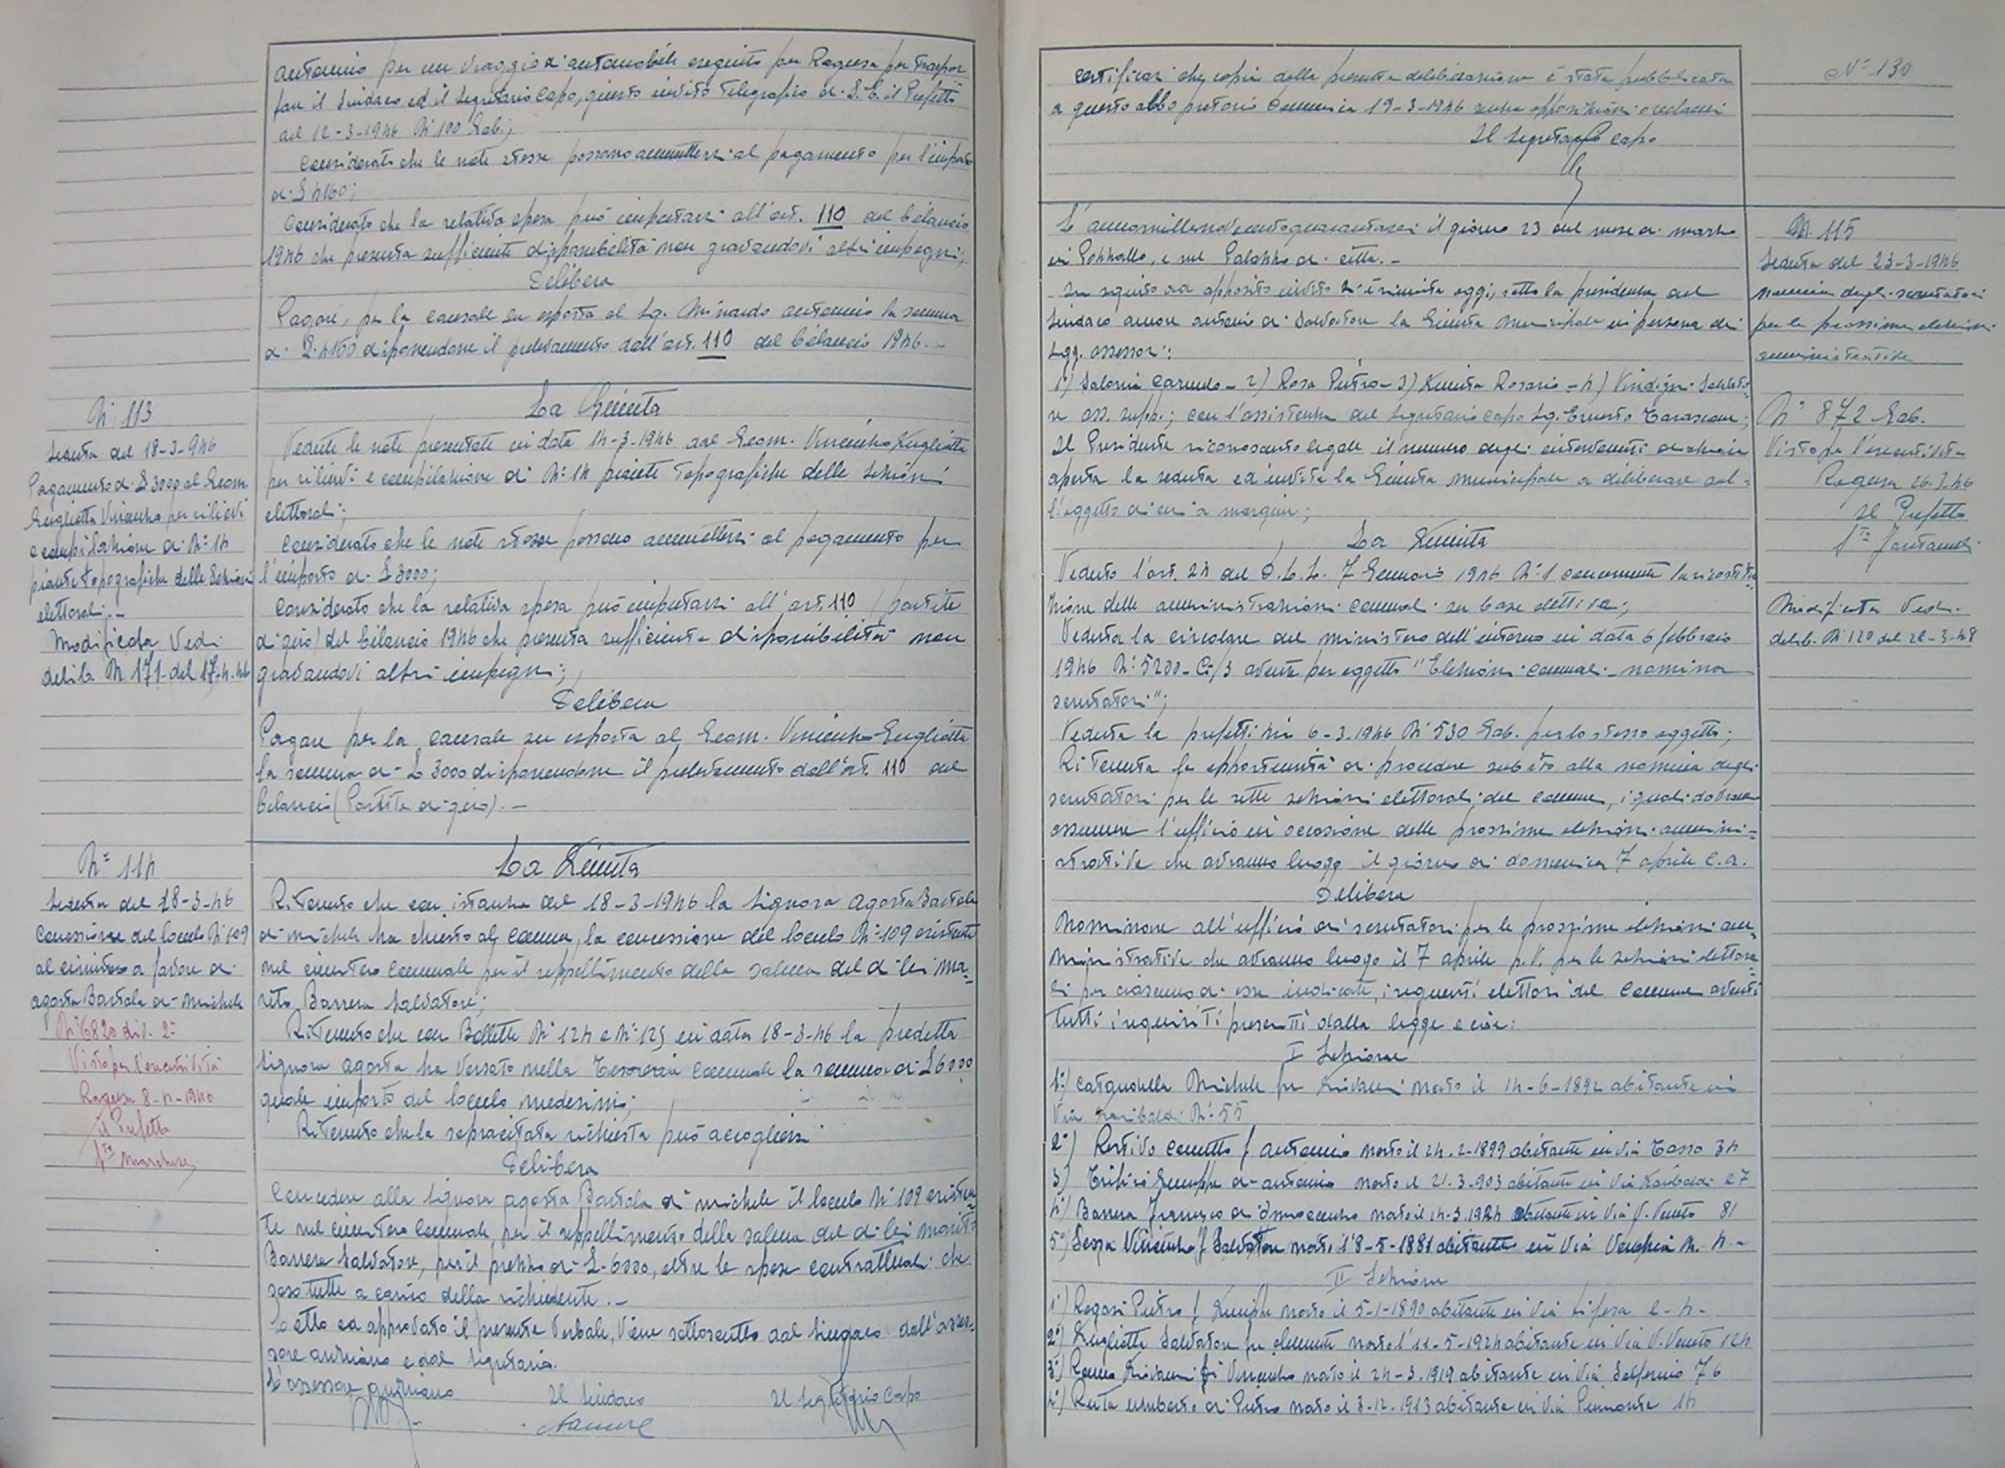 Antonio per un viaggio di automobile eseguito per Ragusa per traspor
tare il Sindaco ed il Segretario Capo, giusto invito telegrafico di S.E. il Prefetto
del 12-3-1946 N° 100 Gab;
Considerato che le note stesse possono ammettersi al pagamento per l'importo
di £ 4160;
Considerato che la relativa spesa può imputarsi all'art. 110 del bilancio
1946 che presenta sufficiente disponibilità non gravandovi altri impegni;
Delibera
Pagare, per la causale su esposta al Sg. Minardo Antonio la somma
di £. 4160 disponendone il prelevamento dall'art. 110 del bilancio 1946.-
N° 113
Seduta del 18-3-946
Pagamento di £ 3000 al Geom
Guglielmo Vincenzo per rilievi
e compilazione di N° 14
piante topografiche delle Sezioni
elettorali.-
Modificata Vedi
delib. N 171 del 17-4-46
La Giunta
Vedute le note presentate in data 14-3-1946 dal Geom. Vincenzo
per rilievi e compilazione di N° 14 piante topografiche delle sezioni
elettorali;
Considerato che le note stesse possono ammettersi al pagamento per
l'importo di £ 3000;
Considerato che la relativa spesa può imputarsi all'art. 110 (partite
di giro) del bilancio 1946 che presenta sufficiente disponibilità non
gravandovi altri impegni;
Delibera
Pagare per la causale su esposta al Geom. Vincenzo
la somma di £ 3000 disponendone il prelevamento dall'art. 110 del
bilancio (Partite di giro).-
N° 114
Seduta del 18-3-46
Concessione del loculo N° 109
al cimitero a favore di
Agosta Bartola di Michele
N° 6820 div. 2ª
Visto per l'esecutività
Ragusa 8-4-1946
il Prefetto
La Giunta
Ritenuto che con istanza del 18-3-1946 la Signora Agosta Bartola
di Michele ha chiesto al Comune la concessione del loculo N° 109 esistente
nel cimitero Comunale per il seppellimento della salma del di lei ma-
rito Barrera Salvatore;
Ritenuto che con Bollette N° 124 e N° 125 in data 18-3-46 la predetta
Signora Agosta ha versato nella Tesoreria Comunale la somma di £ 6000
quale importo del loculo medesimo;
Ritenuto che la sopracitata richiesta può accogliersi
Delibera
Concedere alla Signora Agosta Bartola di Michele il loculo N° 109 esisten
te nel cimitero Comunale, per il seppellimento della salma del di lei marito
Barrera Salvatore, per il prezzo di £. 6000, oltre le spese contrattuali che
sono tutte a carico della richiedente.-
Letto ed approvato il presente verbale, viene sottoscritto dal Sindaco dall'asses-
sore anziano e dal Segretario.
L'assessore anziano Il Sindaco Il Segretario Capo
N° 130
Certificasi che copia della presente deliberazione è stata pubblicata
a questo albo pretorio Domenica 19-3-1946 senza opposizioni o reclami
Il Segretario Capo
N. 115
Seduta del 23-3-1946
nomina degli scrutatori
per le prossime elezioni
amministrative
N° 872 Gab.
Visto per l'esecutività
Ragusa 26.3.46
Il Prefetto
Modificata Vedi
delib. N° 120 del 28-3-48
L'annomillenovecentoquarantasei il giorno 23 del mese di marzo
in Pozzallo, e nel Palazzo di città.-
In seguito ad apposito invito si è riunita oggi, sotto la presidenza del
Sindaco Amore Antonio di Salvatore la Giunta Municipale in persona dei
Sgg. assessori:
1) Salonia Carmelo - 2) Rosa Pietro - 3) Giunta Rosario - 4) Vindigni Salvato
re ass. supp.; con l'assistenza del Segretario Capo Sg. Ernesto
Il Presidente riconosciuto legale il numero degli intervenuti dichiara
aperta la seduta ed invita la Giunta municipale a deliberare sul-
l'oggetto di cui a margine;
La Giunta
Veduto l'art. 24 del D.L.L. 7 Gennaio 1946 N° 1 concernente la ricostitu
zione delle amministrazioni comunali su base elettiva;
Veduta la circolare del ministero dell'interno in data 6 febbraio
1946 N° 5200 avente per oggetto "Elezioni comunali - nomina
scrutatori";
Veduta la prefettizia 6-3-1946 N° 530 Gab. per lo stesso oggetto;
Ritenuta la opportunità di procedere subito alla nomina degli
scrutatori per le sette sezioni elettorali del Comune, i quali dovranno
assumere l'ufficio in occasione delle prossime elezioni ammini-
strative che avranno luogo il giorno di domenica 7 aprile c.a.
Delibera
Nominare all'ufficio di scrutatori per le prossime elezioni am-
ministrative che avranno luogo il 7 aprile p.v. per le sezioni elettora-
li per ciascuno di esse indicate, i seguenti elettori del Comune aventi
tutti i requisiti presenti dalla legge e cioè:
I Sezione
1°) Michele fu Giovanni nato il 14-6-1892 abitante in
Via Garibaldi N° 55
2°) f Antonio nato il 24-2-1899 abitante in Via Tasso 34
3) Giuseppe di Antonio nato il 21-3-903 abitante in Via Garibaldi 27
4) Barrera Francesco di Innocenzo nato il 14-3-1924 abitante in Via V. Veneto 81
5°) Vincenzo f Salvatore nato l'8-5-1881 abitante in Via Venezia N. 4.-
II Sezione
1°) Rogasi Pietro f Giuseppe nato il 5-1-1890 abitante in Via
2°) Salvatore fu Clemente nato l'11-5-1924 abitante in Via V. Veneto 124
3°) Giovanni di Vincenzo nato il 24-3-1919 abitante in Via Solferino 76
4) Ruta Umberto di Pietro nato il 3-12-1913 abitante in Via Piemonte 14